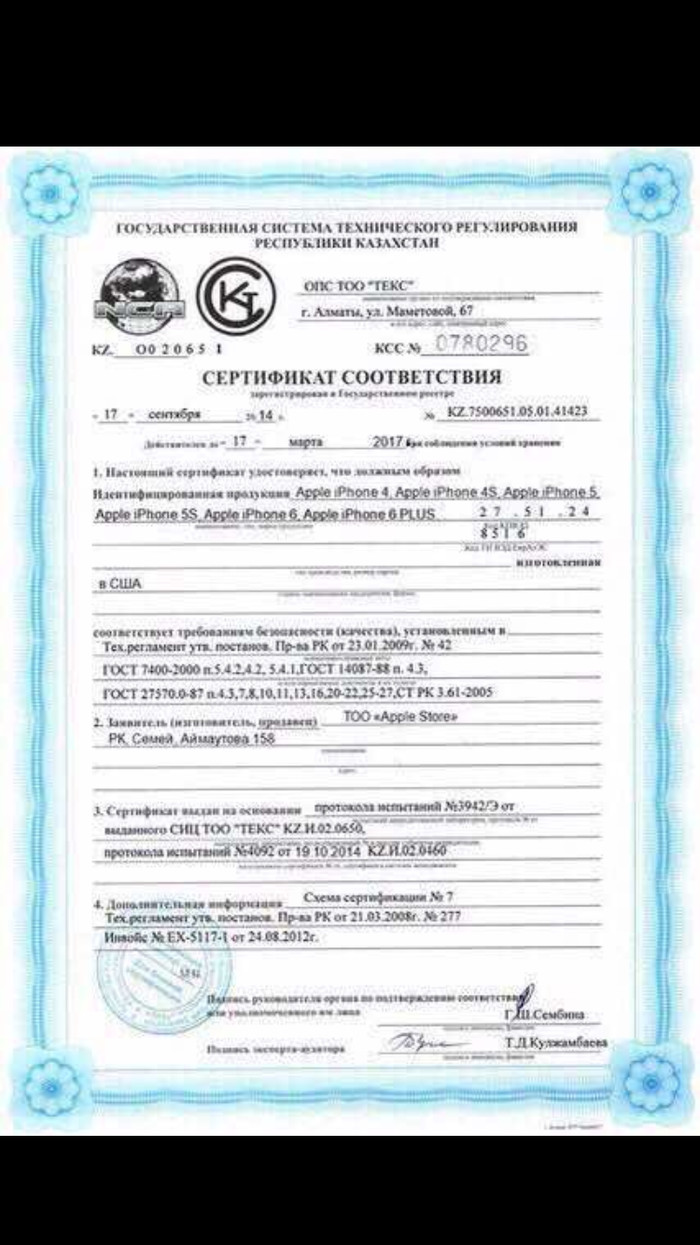 ГОСУДАРСТВЕННАЯ СИСТЕМА ТЕХНИЧЕСКОГО РЕГУЛИРОВАНИЯ
РЕСПУБЛИКИ КАЗАХСТАН
ОПС ТОО "ТЕКС"
г. Алматы, ул. Маметовой, 67
KZ. О020651
КСС № 0780296
СЕРТИФИКАТ СООТВЕТСТВИЯ
зарегистрирован в Государственном реестре
« 17 » сентября 2014 г. № KZ.7500651.05.01.41423
Действителен до « 17 » марта 2017 при соблюдении условий хранения
1. Настоящий сертификат удостоверяет, что должным образом
Идентифицированная продукция Apple iPhone 4, Apple iPhone 4S, Apple iPhone 5,
Apple iPhone 5S, Apple iPhone 6, Apple iPhone 6 PLUS 27 .51 .24
8516
изготовленная
в США
соответствует требованиям безопасности (качества), установленным в
Тех.регламент утв. постанов. Пр-ва РК от 23.01.2009г. № 42
ГОСТ 7400-2000 п.5.4.2,4.2, 5.4.1,ГОСТ 14087-88 п. 4.3,
ГОСТ 27570.0-87 п.4.3,7,8,10,11,13,16,20-22,25-27,СТ РК 3.61-2005
2. Заявитель (изготовитель, продавец) ТОО «Apple Store»
РК, Семей, Аймаутова 158
3. Сертификат выдан на основании протокола испытаний №3942/Э от
выданного СИЦ ТОО "ТЕКС" KZ.И.02.0650,
протокола испытаний №4092 от 19 10 2014 KZ.И.02.0460
4. Дополнительная информация Схема сертификации № 7
Тех.регламент утв. постанов. Пр-ва РК от 21.03.2008г. № 277
Инвойс № EX-5117-1 от 24.08.2012г.
Подпись руководителя органа по подтверждению соответствия
или уполномоченного им лица Г.Ш.Сембина
Подпись эксперта-аудитора Т.Д.Кулжамбаева